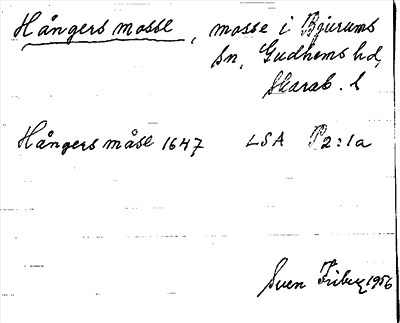 Hångers mosse, mosse i Bjurums
sn, Gudhems hd,
Skarab. l
Hångers måse 1647 LSA P2:1a
Sven Friberg 1956